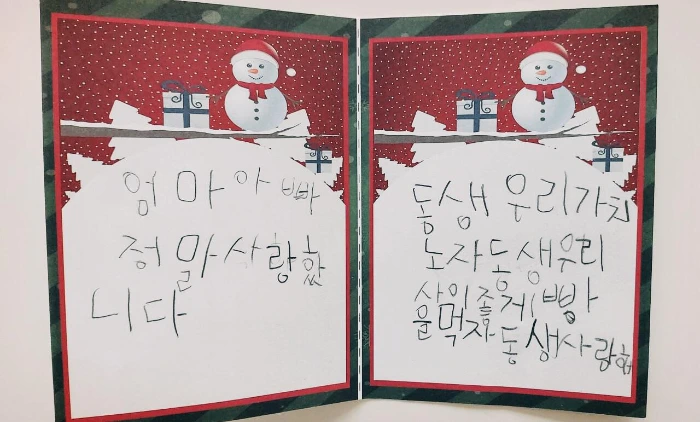 엄마아빠
정말사랑했
니다
동생 우리가치
노자동생우리
사이좋게빵
을먹자동생사랑해